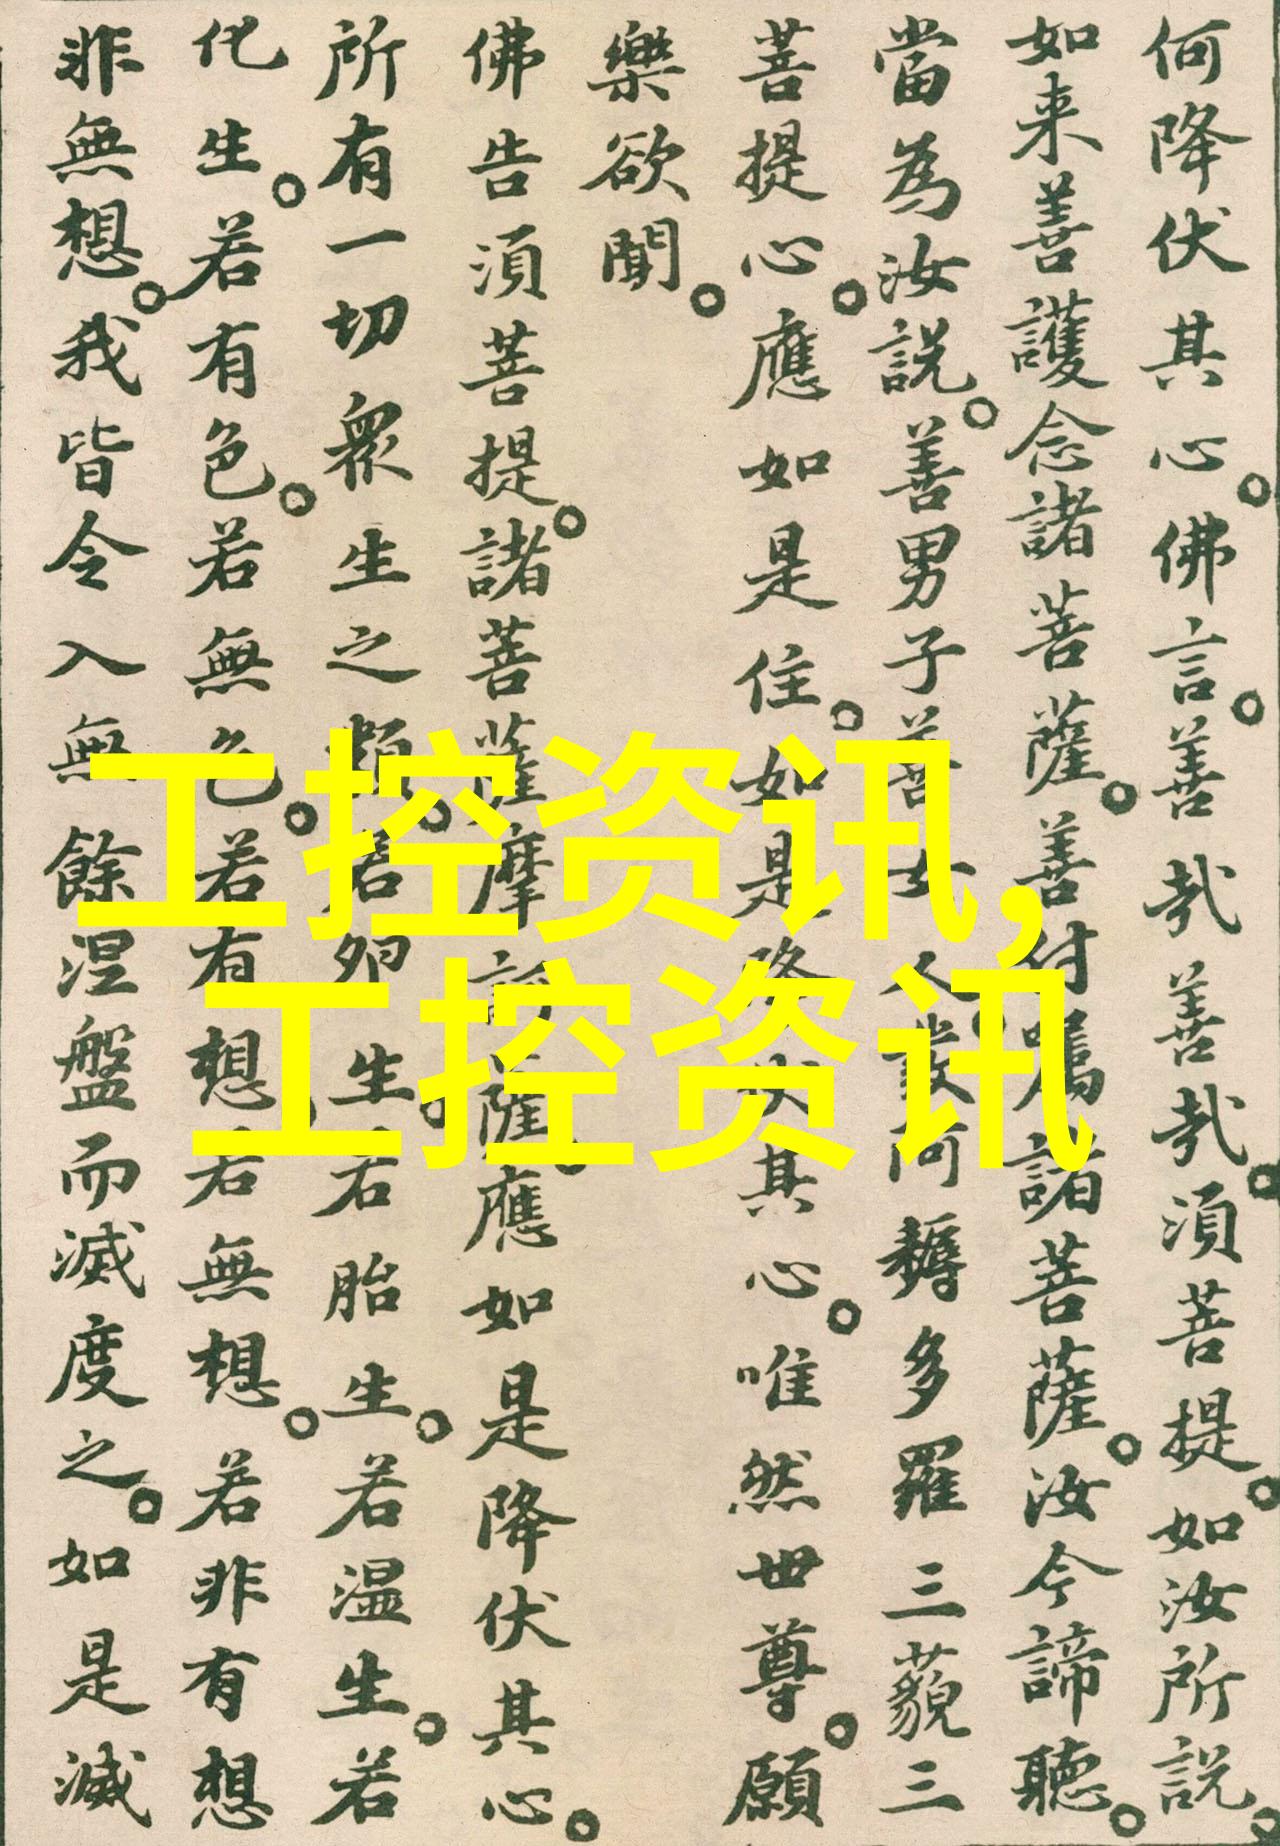 何降伏其心。佛言。善哉善哉。須菩提。如汝所説。
如来善護念諸菩薩。善付囑諸菩薩。汝今諦聽。
當為汝説。善男子善女人。發阿耨多羅三藐三
菩提心。應如是住。如是降伏其心。唯然世尊。願
樂欲聞。
佛告須菩提。諸菩薩摩訶薩。應如是降伏其心。
所有一切衆生之類。若卵生。若胎生。若温生。若
化生。若有色。若無色。若有想。若無想。若非有想
非無想。我皆令入無餘涅盤而滅度之。如是滅
工控资讯,
工控资讯